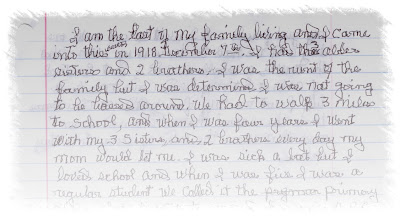 I am the last of my family living and I came
into this world in 1918 December 7th. I had three older
sisters and 2 brothers. I was the runt of the
family but I was determined I was not going
to be bossed around. We had to walk 3 miles
to school, and when I was four years I went
with my 3 sisters and 2 brothers every day my
mom would let me. I was sick a lot but I
loved school and when I was five I was a
regular student we called it the prymer primary